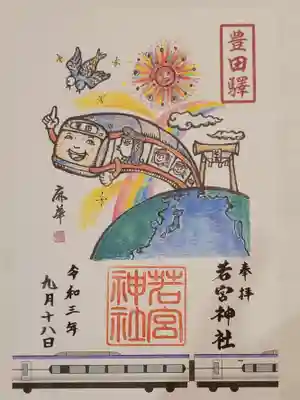 豊田驛
奉拝
若宮神社
若宮
神社
令和三年
九月十八日
麻華